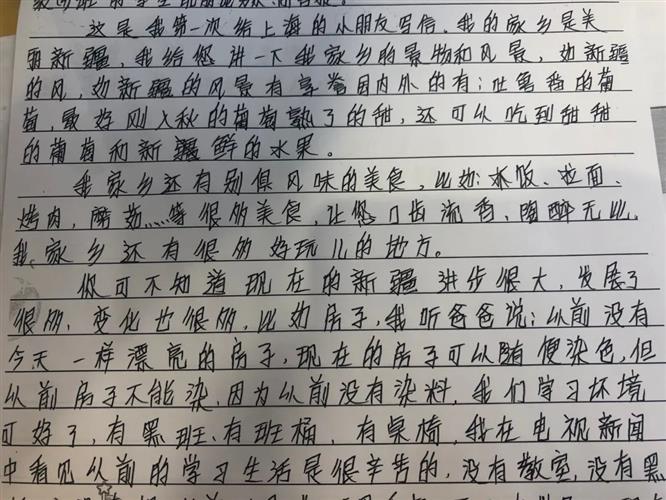 这是我第一次给上海的小朋友写信,我的家乡是美
丽新疆,我给您讲一下我家乡的景物和风景,如新疆
的风,如新疆的风景有享誉国内外的有:吐鲁番的葡
萄,最好刚入秋的葡萄熟了的甜,还可以吃到甜甜
的葡萄和新疆鲜的水果。
我家乡还有别俱风味的美食,比如:抓饭、拉面、
烤肉,蘑菇……等很多美食,让您口齿流香,陶醉无比,
我家乡还有很多好玩儿的地方。
你可不知道现在的新疆进步很大,发展了
很多,变化也很多,比如房子,我听爸爸说:从前没有
今天一样漂亮的房子,现在的房子可以随便染色,但
从前房子不能染,因为从前没有染料,我们学习环境
可好了,有黑班、有班桶,有桌椅,我在电视新闻
中看见从前的学习生活是很辛苦的,没有教室,没有黑